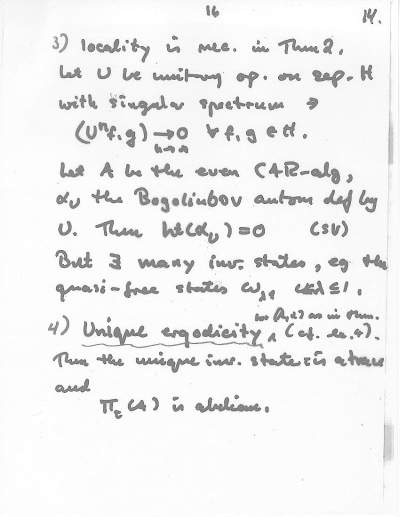 16
14.
3) locality is nec. in Thm 2.
Let U be unitary op. on sep. H
with singular spectrum ∋
(Uⁿf, g) → 0 ∀ f, g ∈ H.
n→∞
Let A be the even CAR-alg,
α_U the Bogoliubov autom def by
U. Then ht(α_U) = 0 (SV)
But ∃ many inv. states, eg the
quasi-free states ω_λ, 0≤λ≤1.
for (A,α) as in thm.
4) Unique ergodicity, (cf. ex. 4).
Then the unique inv. state τ is a trace
and
π_τ(A) is abelian.